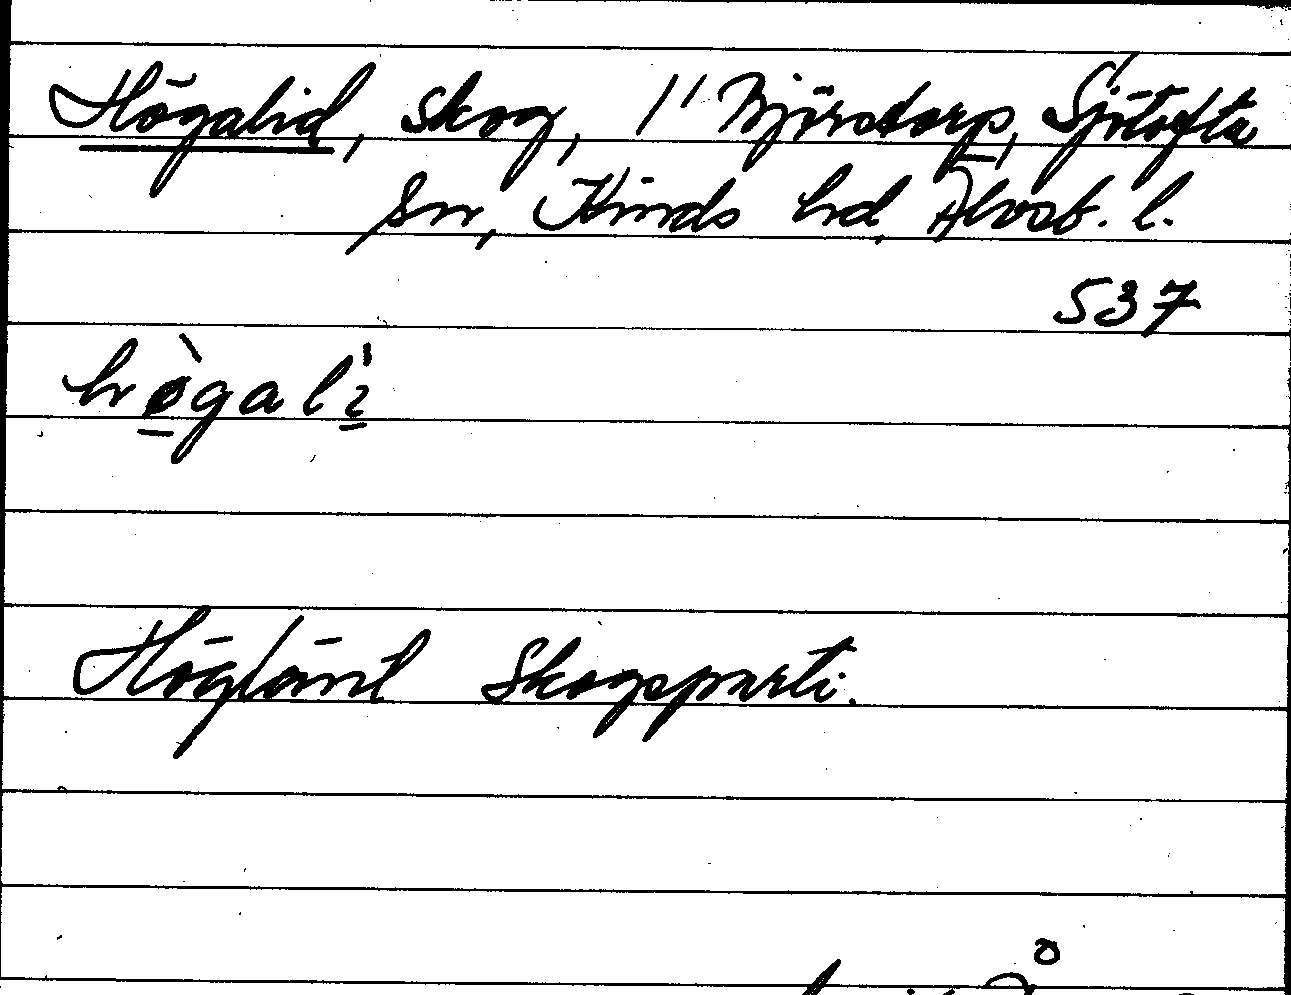 Högalid, Skog, 1" Björstorp, Sjötofta
sn, Kinds hd, Älvsb. l.
537
hø̀gali̇̀
Höglänt Skogsparti.